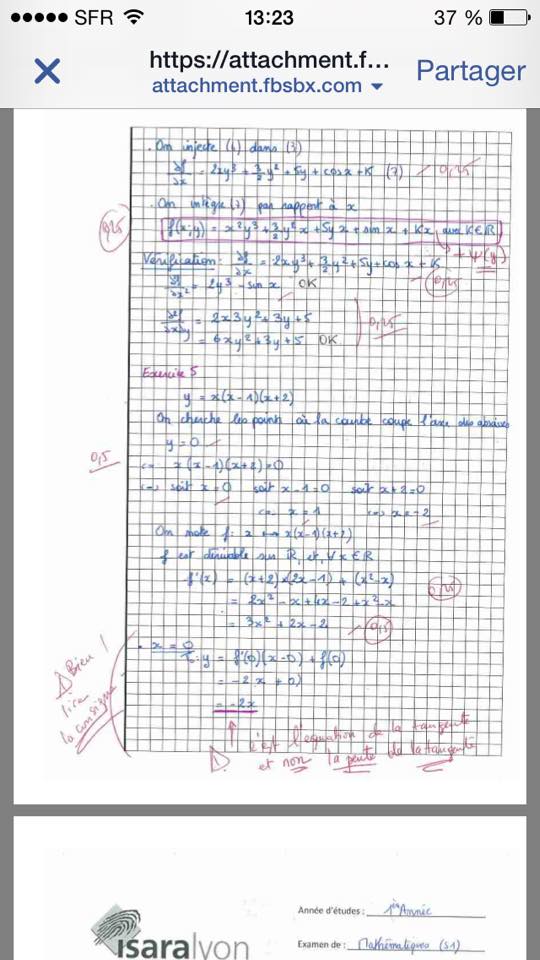 SFR 13:23 37 %
https://attachment.f...
attachment.fbsbx.com
Partager
. On injecte (6) dans (3)
∂f/∂x = 2xy³ + 3/2 y² + 5y + cos x + K (7) 0,25
. On intègre (7) par rapport à x
0,25 f(x;y) = x²y³ + 3/2 y² x + 5y x + sin x + Kx avec K∈ℝ
+ Ψ(y)
Vérification: ∂f/∂x = 2xy³ + 3/2 y² + 5y + cos x + K
0,25
∂²f/∂x² = 2y³ - sin x OK
∂²f/∂x∂y = 2x3y² + 3y + 5
= 6xy² + 3y + 5 OK
0,25
Exercice 5
y = x(x-1)(x+2)
On cherche les points où la courbe coupe l'axe des abscisses
y = 0
0,5 <=> x(x-1)(x+2)=0
<=> soit x=0 soit x-1=0 soit x+2=0
<=> x=1 <=> x=-2
On note f: x ↦ x(x-1)(x+2)
f est dérivable sur ℝ, et, ∀x∈ℝ
f'(x) = (x+2)×(2x-1) + (x²-x)
0,25
= 2x² - x + 4x - 2 + x² - x
= 3x² + 2x - 2
. x = 0
Bien lire la consigne !
T: y = f'(0)(x-0) + f(0)
= -2x + 0
= -2x
c'est l'équation de la tangente
et non la pente de la tangente
isaralyon
Année d'études : 1ère Année
Examen de : Mathématiques (S1)